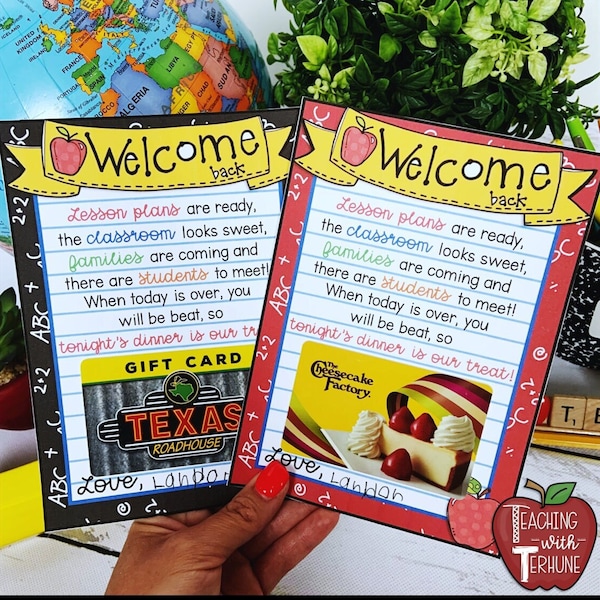 UNITED KINGDOM
ALGERIA
LIBYA
SUDAN
Welcome
back
Lesson plans are ready,
the classroom looks sweet,
families are coming and
there are students to meet!
When today is over, you
will be beat, so
tonight's dinner is our treat!
GIFT CARD
TEXAS
ROADHOUSE
Love, Landon
ABC + 2+2
Welcome
back
Lesson plans are ready,
the classroom looks sweet,
families are coming and
there are students to meet!
When today is over, you
will be beat, so
tonight's dinner is our treat!
The
Cheesecake
Factory
Love, Landon
ABC + 2+2
TE
TEACHING
WITH
TERHUNE